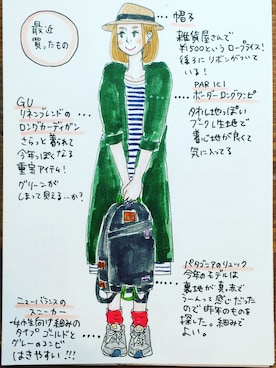 最近
買ったもの
帽子
雑貨屋さんで
¥500というロープライス!
後ろにリボンがついて
いる!
PAR ICI
ボーダーロングワンピ
タオル地っぽい
ブークレ生地で
着心地が良くて
気に入ってる
GU
リネンブレンドの
ロングカーディガン
さらっと着られて
今年っぽくなる
重宝アイテム!
グリーンが
しまって見える…か?
パタゴニアのリュック
今年のモデルは
裏地が真っ赤で
うーんって感じだった
ので昨年のものを
探した。緑みで
よい。
ニューバランスの
スニーカー
女小生向け組みの
タイプ ゴールドと
グレーのコンビ
(はきやすい!!!